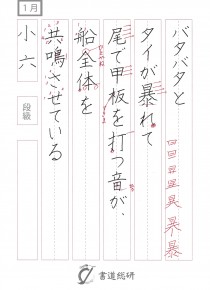 1月
バタバタと
タイが暴れて
尾で甲板を打つ音が、
船全体を
共鳴させている
小六
段級
書道総研